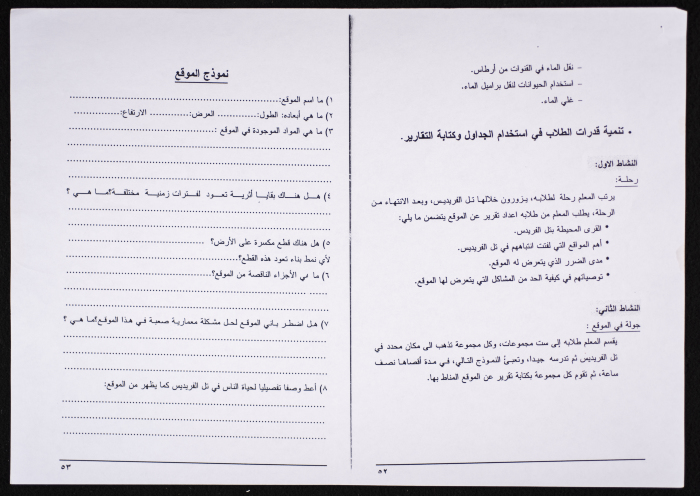 - نقل الماء في القنوات من أرطاس.
- استخدام الحيوانات لنقل براميل الماء.
- غلي الماء.
• تنمية قدرات الطلاب في استخدام الجداول وكتابة التقارير.
النشاط الاول:
رحلة:
يرتب المعلم رحلة لطلابه، يزورون خلالها تل الفريديس، وبعد الانتهاء من
الرحلة، يطلب المعلم من طلابه اعداد تقرير عن الموقع يتضمن ما يلي:
• القرى المحيطة بتل الفريدس.
• أهم المواقع التي لفتت انتباههم في تل الفريديس.
• مدى الضرر الذي يتعرض له الموقع.
• توصياتهم في كيفية الحد من المشاكل التي يتعرض لها الموقع.
النشاط الثاني:
جولة في الموقع :
يقسم المعلم طلابه إلى ست مجموعات، وكل مجموعة تذهب الى مكان محدد في
تل الفريديس ثم تدرسه جيدا، وتعبئ النموذج التالي، في مدة أقصاها نصف
ساعة، ثم تقوم كل مجموعة بكتابة تقرير عن الموقع المناط بها.
٥٢
نموذج الموقع
١) ما اسم الموقع:................................................
٢) ما هي أبعاده: الطول:............. العرض:............. الارتفاع:...............
٣) ما هي المواد الموجودة في الموقع :................................
................................................................
................................................................
٤) هل هناك بقايا أثرية تعود لفترات زمنية مختلفة؟ما هي ؟
................................................................
................................................................
٥) هل هناك قطع مكسرة على الأرض؟ ................................
لأي نمط بناء تعود هذه القطع؟................................
٦) ما هي الأجزاء الناقصة من الموقع؟................................
................................................................
................................................................
٧) هل اضطر باني الموقع لحل مشكلة معمارية صعبة في هذا الموقع؟ما هي ؟
................................................................
................................................................
................................................................
٨) أعط وصفا تفصيليا لحياة الناس في تل الفريديس كما يظهر من الموقع:
................................................................
................................................................
................................................................
٥٣